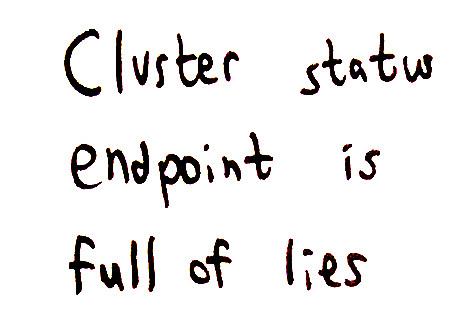 Cluster status
endpoint is
full of lies